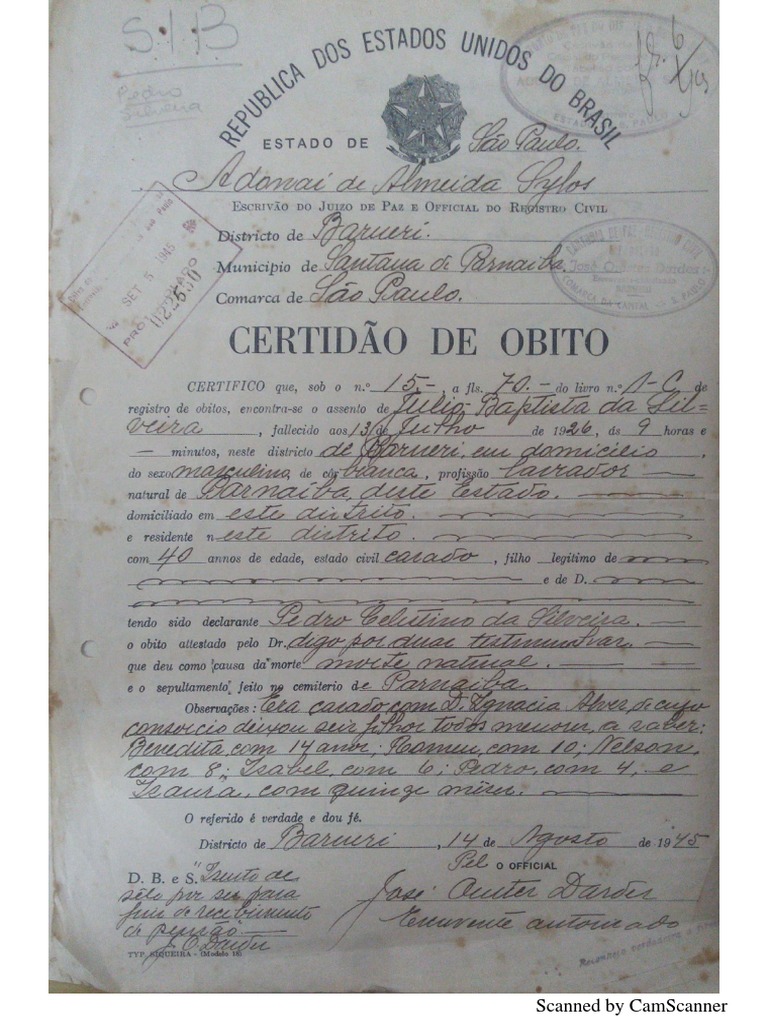 S.I.B
Pedro
Silveira
REPUBLICA DOS ESTADOS UNIDOS DO BRASIL
ESTADO DE São Paulo.
Adonai de Almeida Sylos
ESCRIVÃO DO JUIZO DE PAZ E OFFICIAL DO REGISTRO CIVIL
Districto de Barueri.
Municipio de Santana de Parnaiba
Comarca de São Paulo.
SET 5 1945
PROTOCOLADO
CERTIDÃO DE OBITO
CERTIFICO que, sob o n.º 15.-, a fls. 70.- do livro n.º 1-C de
registro de obitos, encontra-se o assento de Julio Baptista da Sil=
veira, fallecido aos 13 de Julho de 1926, ás 9 horas e
— minutos, neste districto de Barueri, em domicilio,
do sexo masculino, de côr branca, profissão lavrador
natural de Parnaiba, deste Estado.
domiciliado em este distrito.
e residente n este distrito.
com 40 annos de edade, estado civil casado, filho legitimo de
e de D.
tendo sido declarante Pedro Celestino da Silveira.
o obito attestado pelo Dr. digo por duas testimunhas
que deu como "causa da" morte morte natural.
e o sepultamento feito no cemiterio de Parnaiba.
Observações: Era casado com D. Ignacia Alves, de cujo
consorcio deixou seis filhos todos menores, a saber:
Benedita, com 14 anos; Romeu, com 10; Nelson,
com 8; Isabel, com 6; Pedro, com 4, e
Isaura, com quinze mises.
O referido é verdade e dou fé.
Districto de Barueri, 14 de Agosto de 1945
Pel O OFFICIAL
D. B. e S. "Isento de
sêlo por ser para
fins de recebimento
de pensão
J. O. Darder
José Darder
Escrevente autorizado
TYP. SIQUEIRA - (Modelo 18)
Scanned by CamScanner